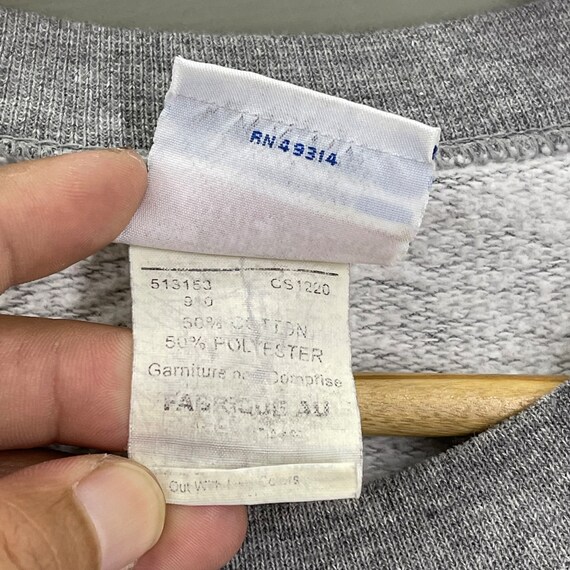 RN 49314
513153 CS1220
50% COTTON
50% POLYESTER
Garniture Comprise
FABRIQUE AU
Out With